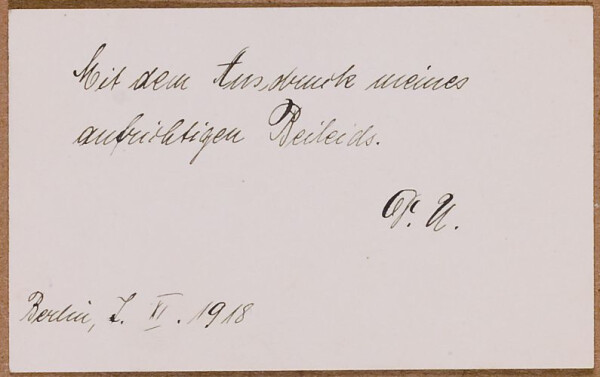 Mit dem Ausdruck meines
aufrichtigen Beileids.
P. U.
Berlin, 7. VI. 1918